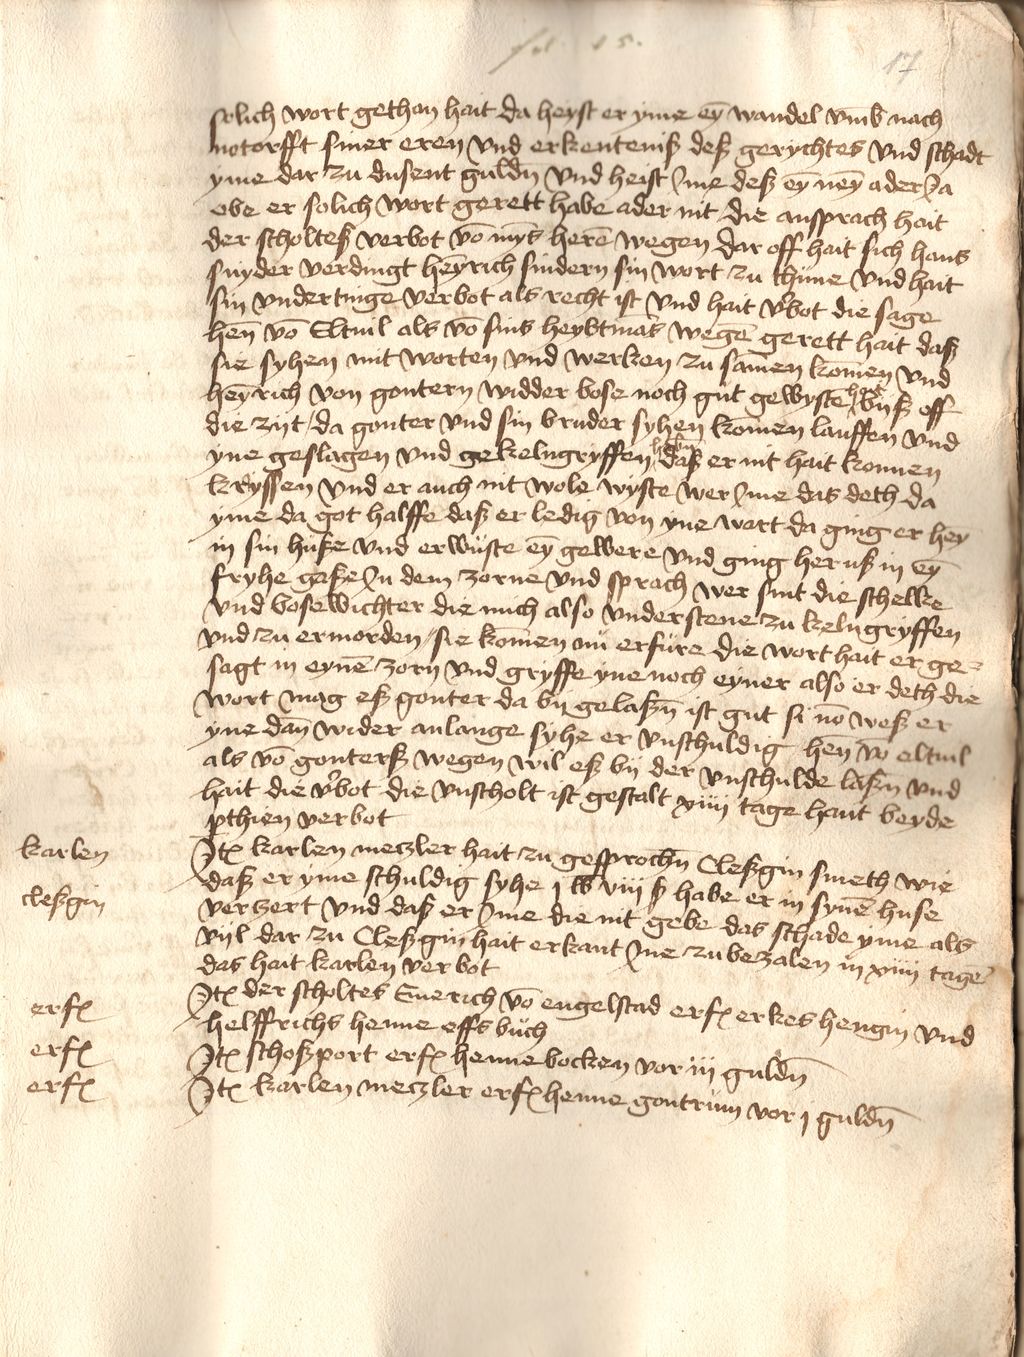 fol. 15.
17
solich wort gethan hait da heyst er yme eȳ wandel vmb nach
notorfft siner eren vnd erkenteniß deß gerychtes vnd schadt
yme dar zu dusent guldn̄ vnd heist Ine deß eȳ neȳ ader Ja
obe er solich wort gerett habe ader nit die ansprach hait
der scholteß verbot vō myns herē wegen dar off hait sich hans
snyder verdingt heȳrich sindern sin wort zu thūne vnd hait
sin vndertinge verbot als recht ist vnd hait v̉bot die sage
hen̄ vō Eltuil als vō sins heybtmās wegē gerett hait daß
sie syhen mit worten vnd werken zu samen komen vnd
heȳrich von gontern widder bose noch gut gewyste hait byß off
die zijt da gonter vnd sin bruder syhen komen lauffen vnd
yne geslagen vnd gekelngryffen haben daß er nit hait konnen
kryssen vnd er auch nit wole wyste wer Ine das deth da
yme da got halffe daß er ledig von yne wart da ging er hey
in sin huse vnd erwuste eȳ gewere vnd ging heruß in eȳ
fryhe gaße In dem zorne vnd sprach wer sint die schelke
vnd bosewichter die mich also vnderstene zu kelngryffen
vnd zu ermorden sie komen nū erfure die wort hait er ge=
sagt in eynē zorn vnd gryffe yne noch eyner also er deth die
wort mag eß gonter da by gelaßn̄ ist gut si nō weß er
yne dan̄ wider anlange syhe er vnschuldig hen̄ vō eltuil
als vō gonterß wegen wil eß by der vnschulde laßn̄ vnd
hait die v̉bot die vnscholt ist gestalt xiiij tage hant beyde
pthien verbot
karlen
Itꝫ karlen meczler hait zu gesprochn̄ Cleßgin smeth wie
daß er yme schuldig syhe j lb viij ß habe er in synē huse
cleßgin
verzert vnd daß er Ime die nit gebe das schade yme als
vijl dar zu Cleßgin hait erkant Ine zu bezalen in xiiij tagē
das hait karlen verbot
erfꝫ
Itꝫ der scholtes Emerich vō engelstad erfꝫ erkes hengin vnd
helffrichs henne effs buch
erfꝫ
Itꝫ schoßport erfꝫ henne bocken vor iij guldn̄
erfꝫ
Itꝫ karlen meczler erfꝫ henne gontrum vor j guldn̄